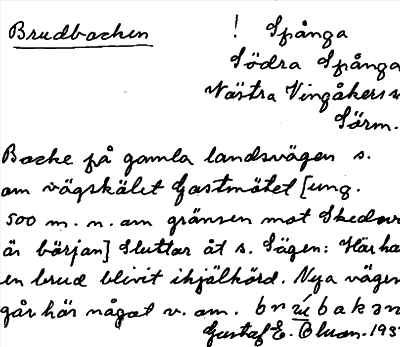 Brudbacken
! Spånga
Södra Spånga
Västra Vingåkers
Sörm.
Backe på gamla landsvägen s.
om vägskälet Gastmötet [ung.
500 m. n. om gränsen mot Skedevi
är början] Sluttar åt s. Sägen: Här ha
en brud blivit ihjälkörd. Nya vägen
går här något v. om. brúbakən
Gustaf E. Olsson. 193